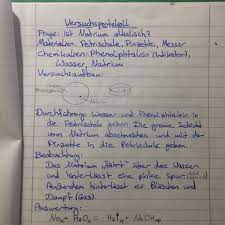 Versuchsprotokoll
Frage: Ist Natrium alkalisch?
Materialien: Petrischale, Pinzette, Messer
Chemikalien: Phenolphtalein (Indikator),
Wasser, Natrium
Versuchsaufbau:
Durchführung: Wasser und Phenolphtalein in
die Petrischale geben. Die graue Schicht
vom Natrium abschneiden und mit der
Pinzette in die Petrischale geben.
Beobachtung:
Das Natrium „fährt" über das Wasser
und hinterlässt eine pinke Spur
Außerdem hinterlässt es Bläschen und
Dampf (Gas).
Auswertung:
Na + H₂O → H₂↑ + NaOH